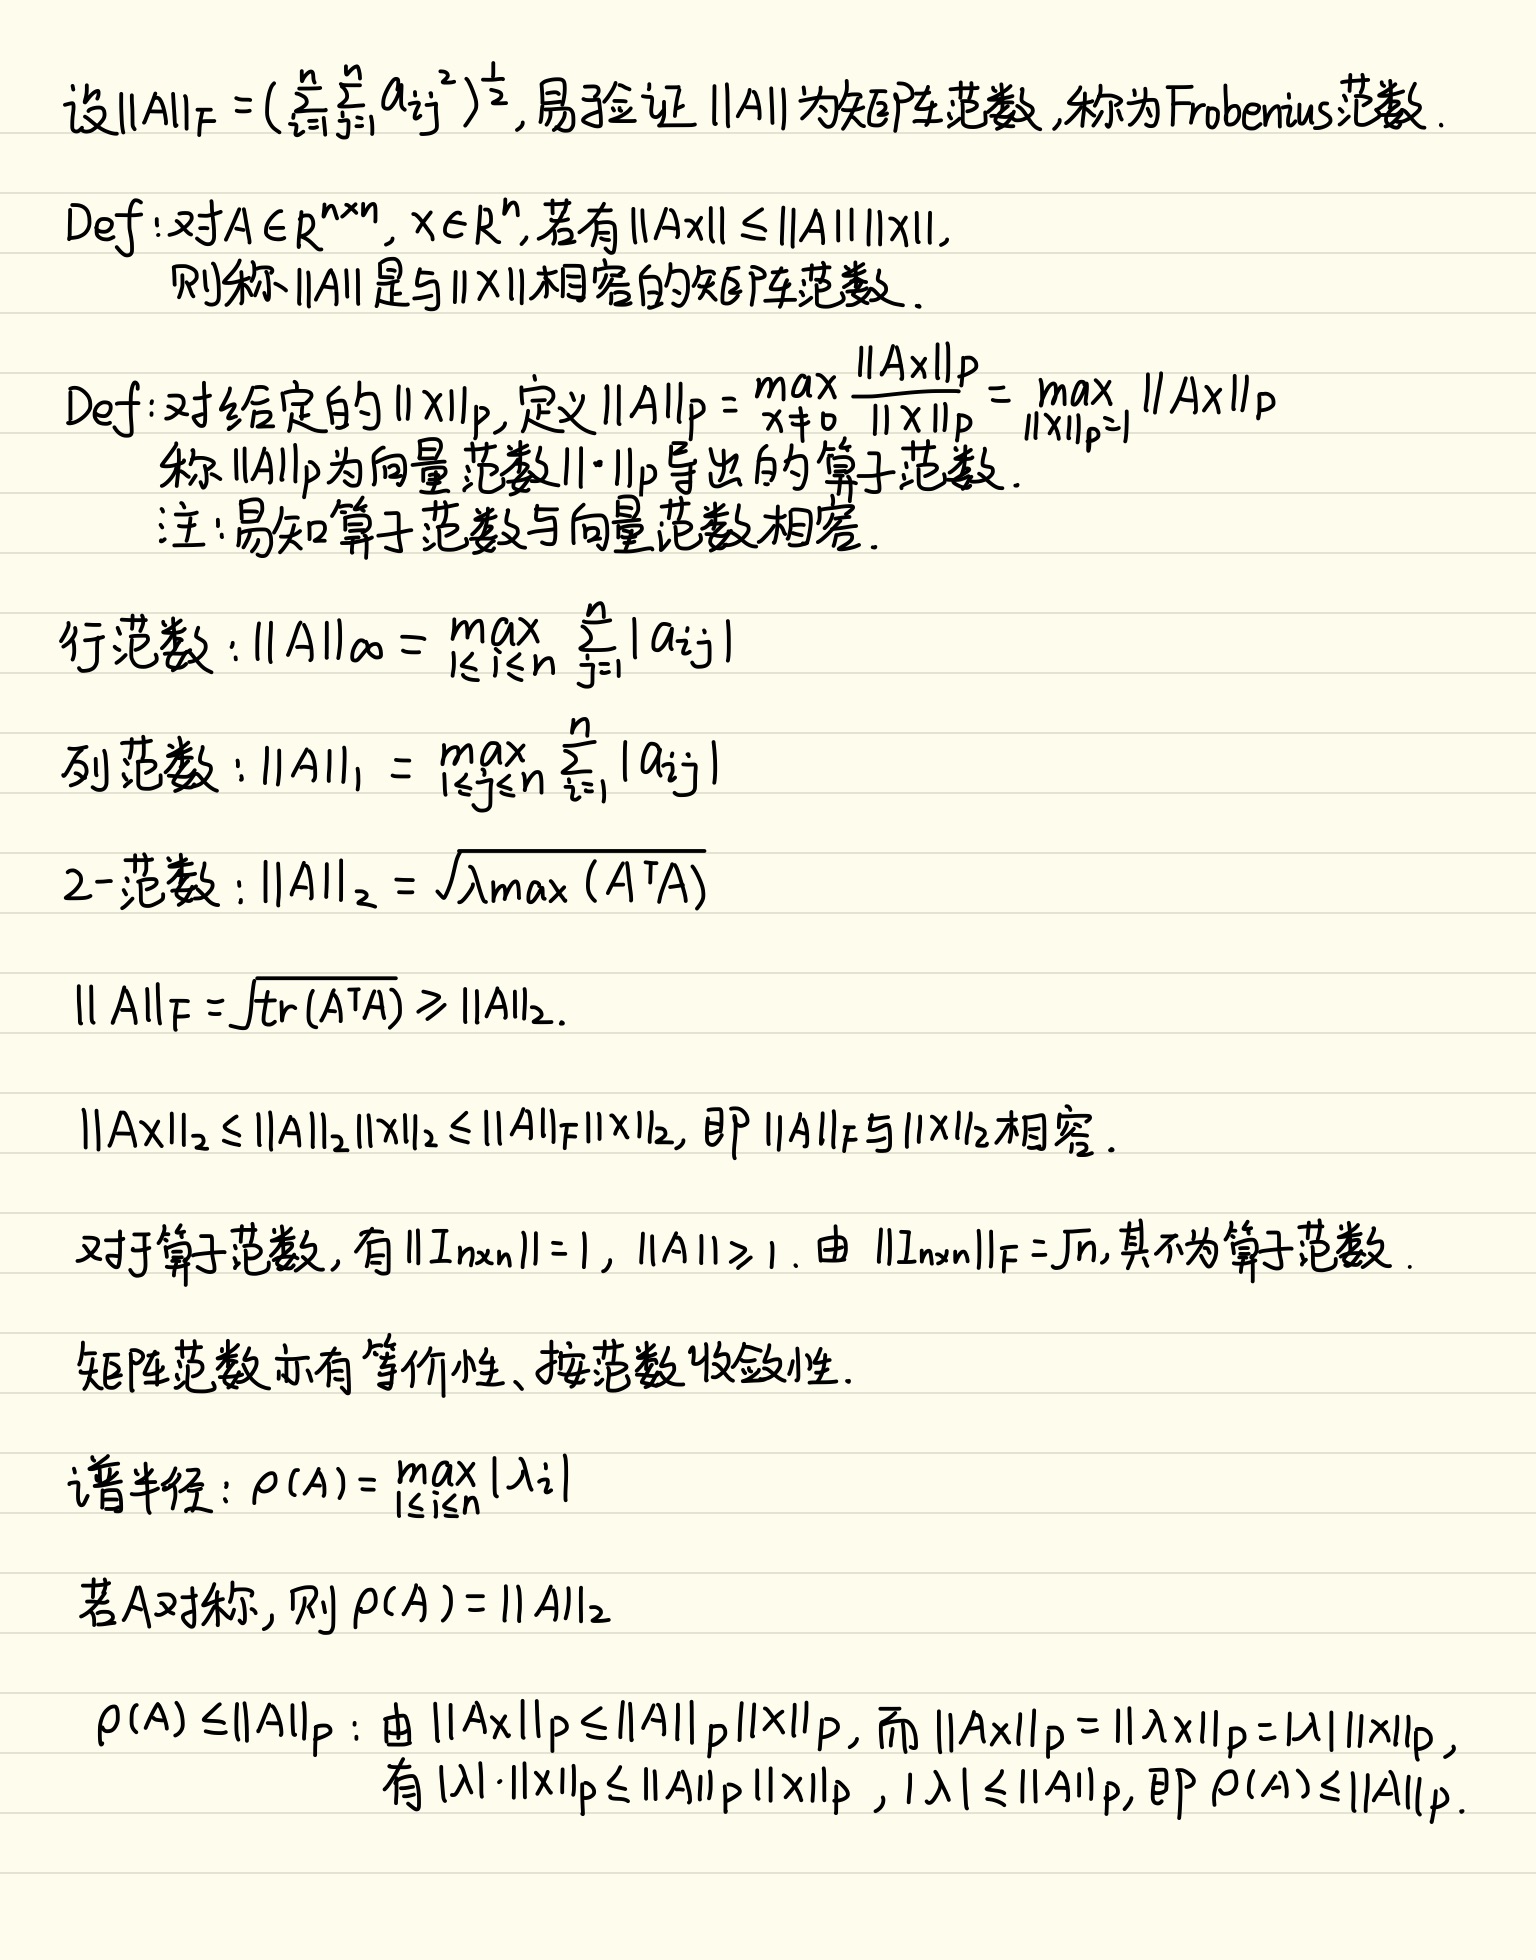 设||A||_F = (∑_{i=1}^{n} ∑_{j=1}^{n} a_{ij}^2)^{1/2}, 易验证 ||A|| 为矩阵范数, 称为Frobenius范数.
Def: 对A∈R^{n×n}, x∈R^n, 若有||Ax|| ≤ ||A|| ||x||,
则称||A||是与||X||相容的矩阵范数.
Def: 对给定的||X||_p, 定义||A||_p = max_{x≠0} ||Ax||_p / ||X||_p = max_{||X||_p=1} ||Ax||_p
称||A||_p为向量范数||·||_p导出的算子范数.
注: 易知算子范数与向量范数相容.
行范数: ||A||_∞ = max_{1≤i≤n} ∑_{j=1}^{n} |a_{ij}|
列范数: ||A||_1 = max_{1≤j≤n} ∑_{i=1}^{n} |a_{ij}|
2-范数: ||A||_2 = √(λmax(A^TA))
||A||_F = √(tr(A^TA)) ≥ ||A||_2.
||Ax||_2 ≤ ||A||_2 ||x||_2 ≤ ||A||_F ||x||_2, 即 ||A||_F与||x||_2相容.
对于算子范数, 有||I_{n×n}|| = 1, ||A|| ≥ 1. 由 ||I_{n×n}||_F = √n, 其不为算子范数.
矩阵范数亦有等价性、按范数收敛性.
谱半径: ρ(A) = max_{1≤i≤n} |λi|
若A对称, 则 ρ(A) = ||A||_2
ρ(A) ≤ ||A||_p: 由 ||Ax||_p ≤ ||A||_p ||x||_p, 而 ||Ax||_p = ||λx||_p = |λ| ||x||_p,
有 |λ|·||x||_p ≤ ||A||_p ||x||_p, |λ| ≤ ||A||_p, 即 ρ(A) ≤ ||A||_p.